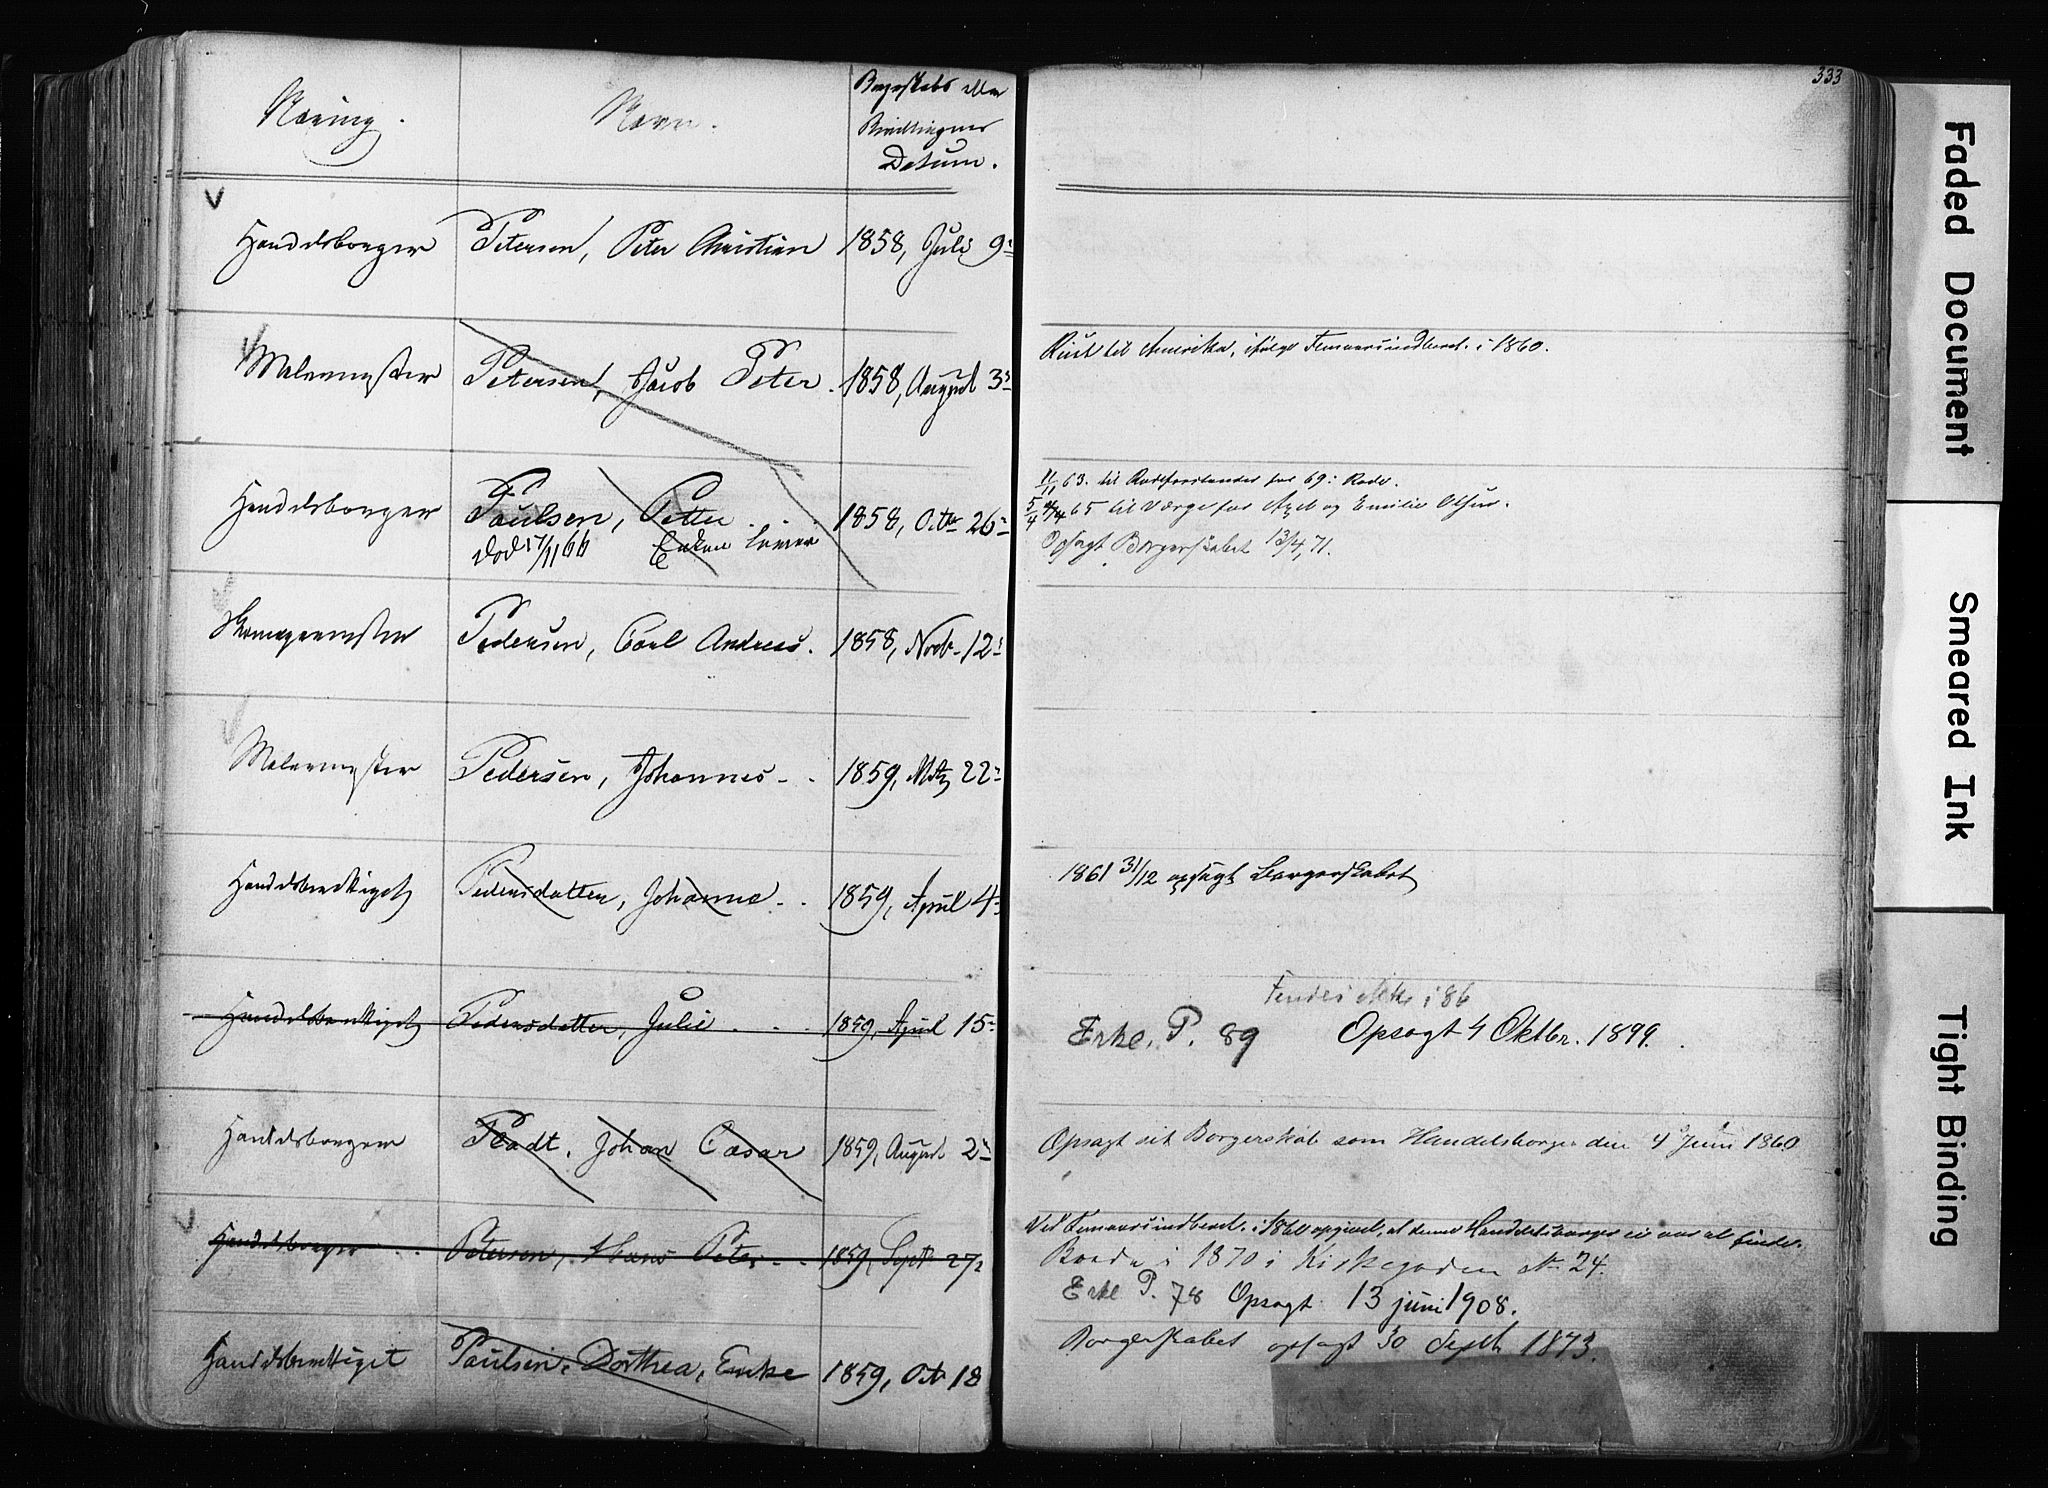 333
Næring. Navn. Borgerskabs eller
Bevillingens
Datum.
Handelsborger Petersen, Peter Christian 1858, Juli 9
Malermester Petersen, Jacob Peter. 1858, August 3
Reist til Amerika, ifølge Femaarsindberet. i 1860.
Handelsborger Paulsen, Petter 1858, Octbr 26
død 17/11 66 Enken
11/11 63. til Rodeforstander for 69: Rode.
65 til Værge for Axel og Emilie
Opsagt Borgerskabet 13/4, 71.
Skomagermester Pedersen, Carl Andreas. 1858, Novbr 12
Malermester Pedersen, Johannes 1859, Mrtz 22
Handelsberettiget Pedersdatter, Johanne 1859, April 4
1861 31/12 opsagt Borgerskabet
Handelsberettiget Pedersdatter, Julie 1859, April 15
i 86
Erkl. P. 89 Opsagt 4 Oktbr. 1899.
Handelsborger Johan Cæsar 1859, August 2
Opsagt sit Borgerskab som Handelsborger den 4 Juni 1860
Handelsborger Petersen, Hans Peter 1859, Septbr 27
Ved Femaarsindberet. i 1860 opgivet, at denne Handelsborger ei var at finde.
Boede i 1870 i Kirkegaden No 24.
Erkl P. 78 Opsagt 13 juni 1908.
Handelsberettiget Paulsen, Dorthea, Enke 1859, Oct 18
Borgerskabet opsagt 30 Septb 1873.
Faded Document
Smeared Ink
Tight Binding